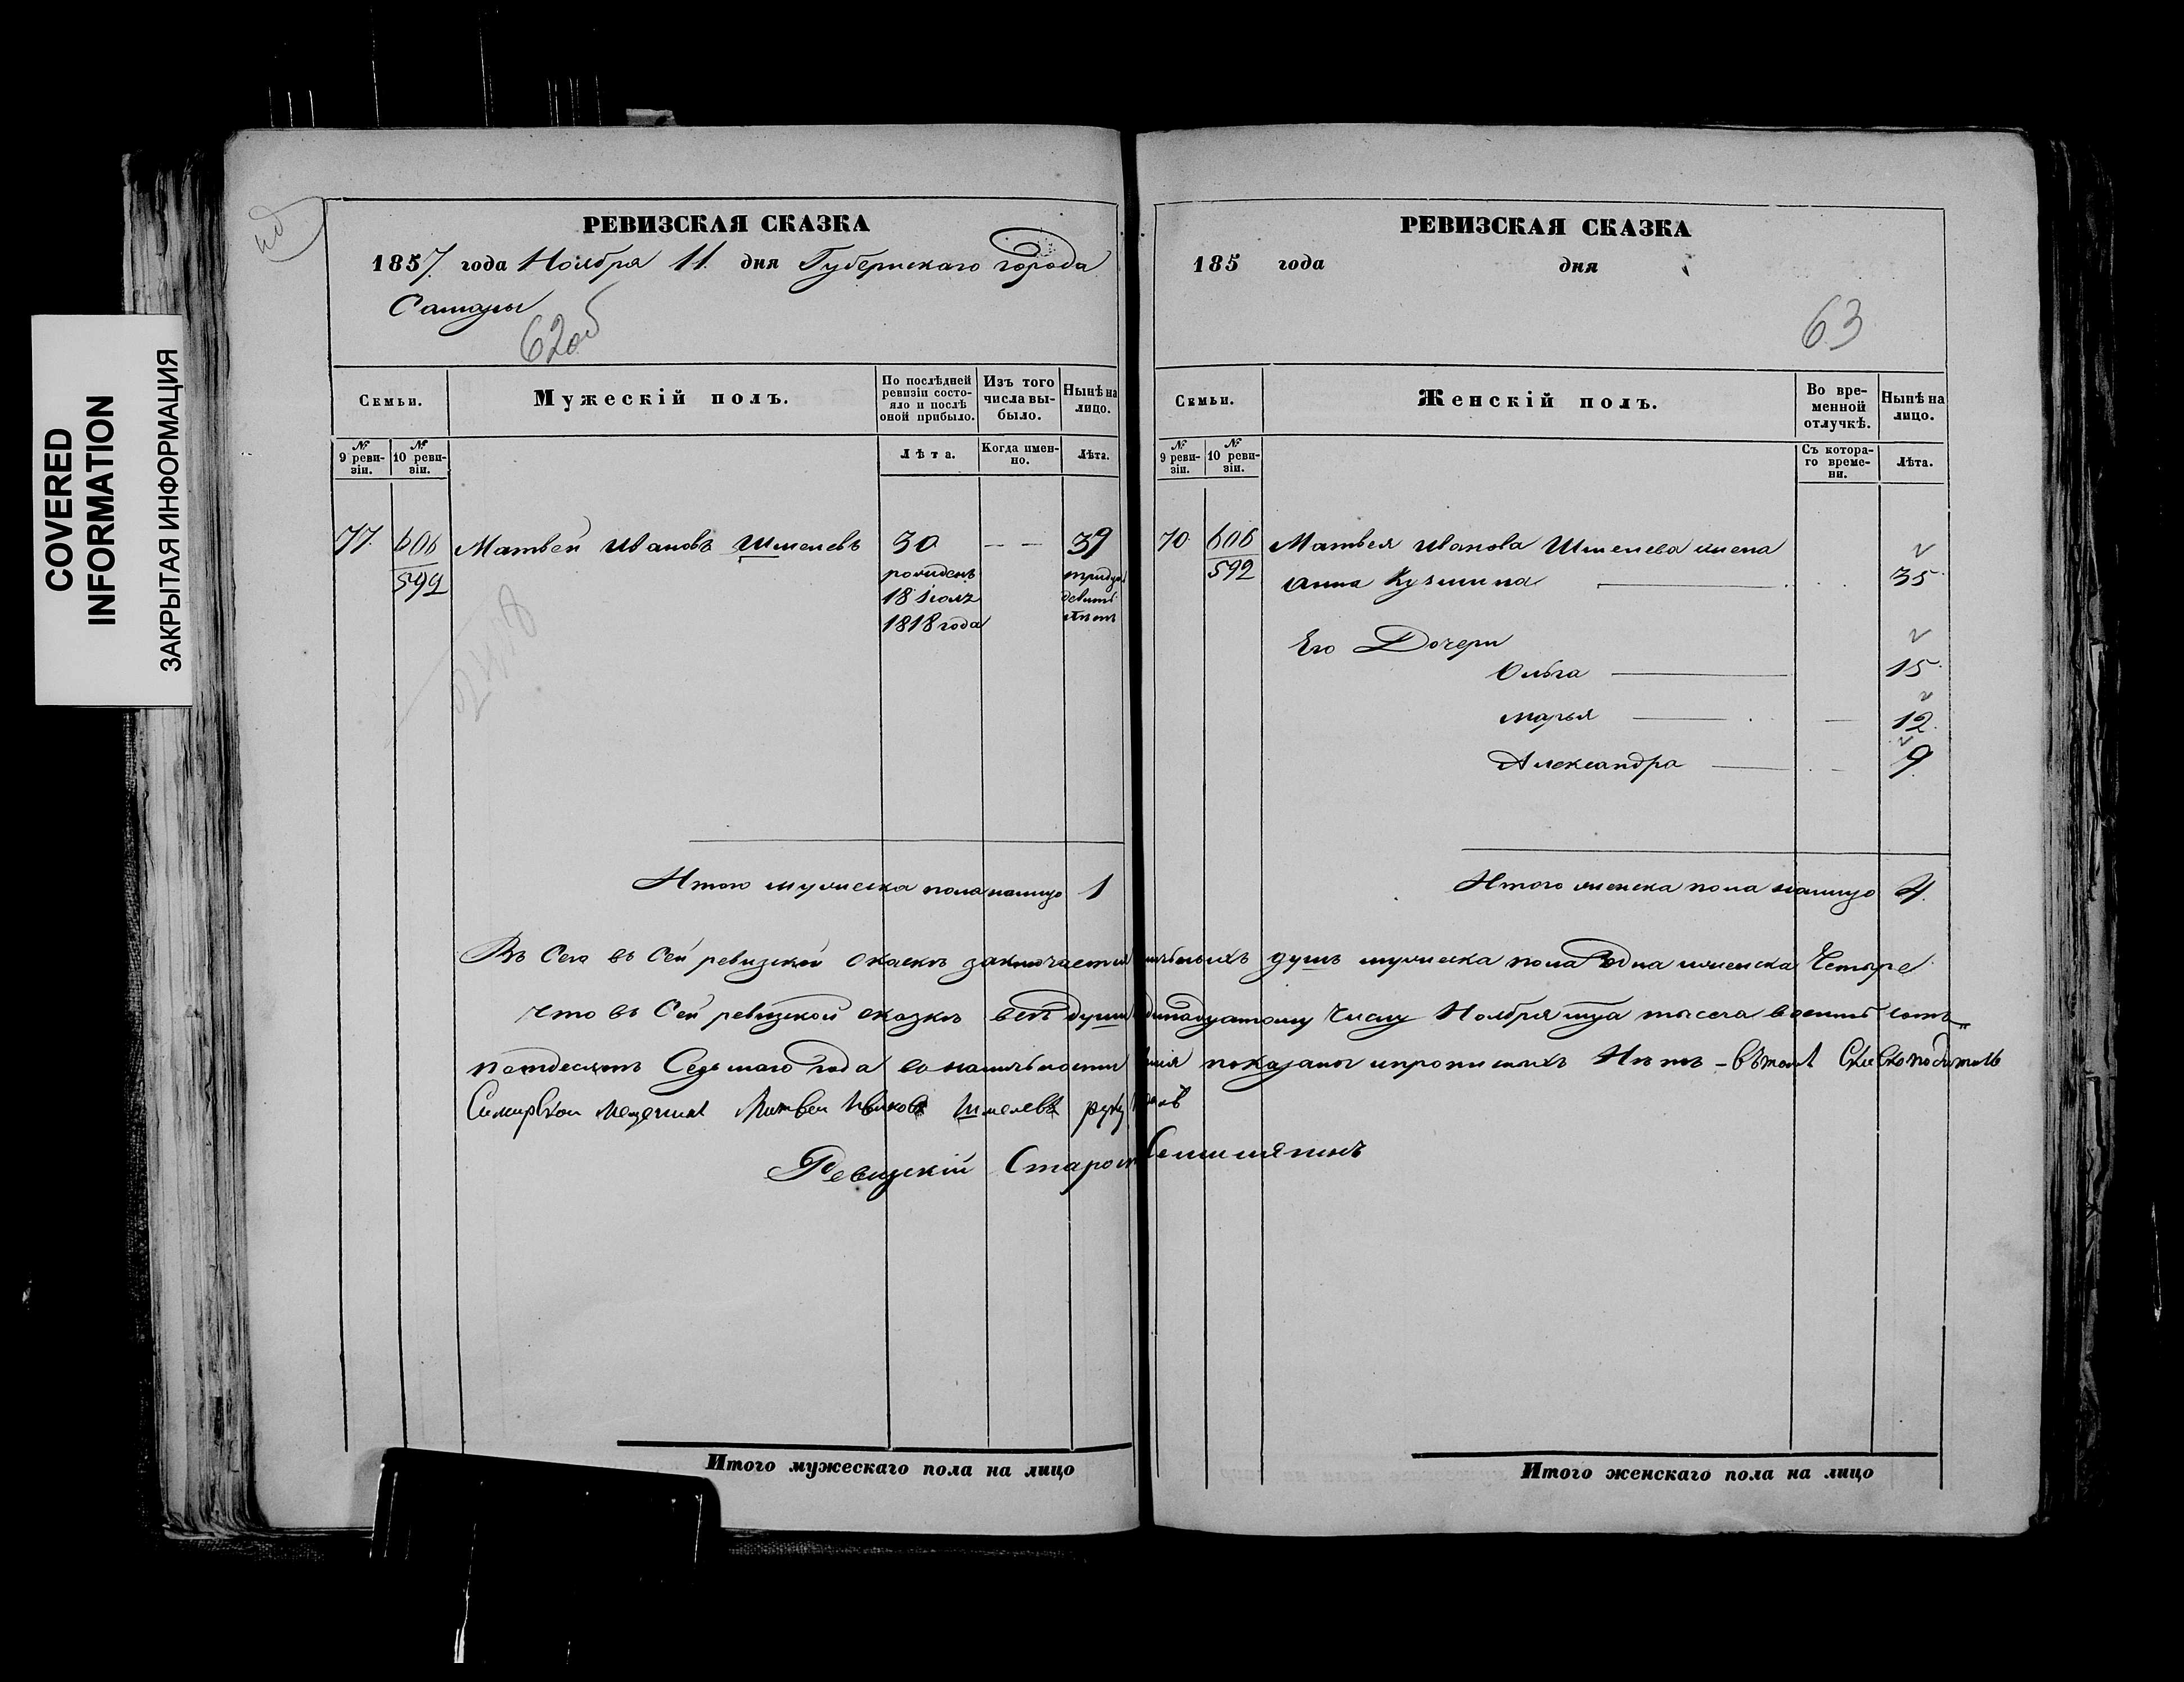 COVERED
INFORMATION
ЗАКРЫТАЯ ИНФОРМАЦИЯ
РЕВИЗСКАЯ СКАЗКА
1857 года Ноября 11 дня Губернскаго города
Самары
62об
Семьи.
Мужескій полъ.
По послѣдней ревизіи состояло и послѣ оной прибыло.
Изъ того числа выбыло.
Нынѣ на лицо.
№ 9 ревизіи.
№ 10 ревизіи.
Лѣта.
Когда именно.
Лѣта.
77 606 Матвей Ивановъ Шмелевъ 30 — — 39
599 рожденъ
18
1818 года
девять
лѣтъ
Итого мужеска пола налицо 1
РЕВИЗСКАЯ СКАЗКА
185 года дня
63
Семьи.
Женскій полъ.
Во временной отлучкѣ.
Нынѣ на лицо.
№ 9 ревизіи.
№ 10 ревизіи.
Съ котораго времени.
Лѣта.
70 606 Матвея Иванова Шмелева жена
592 Анна Кузмина 35
Его Дочери
Ольга 15
Марья 12
Александра 9
Итого женска пола налицо 4
въ Сей ревизской скаскѣ заключается душъ мужеска пола одна женска Четыре
Что въ Сей ревизской сказкѣ всѣ души Числу Ноября тысеча восемь сотъ
Седьмаго года показаны и прописныхъ Нѣтъ
Матвей Ивановъ Шмелевъ руку
Ревизскій
Итого мужескаго пола на лицо
Итого женскаго пола на лицо